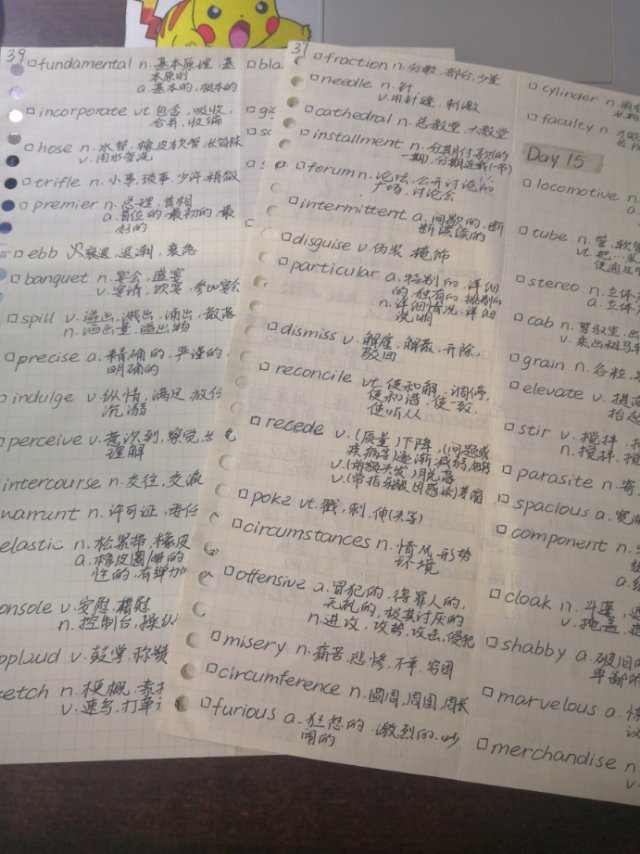 39
□fundamental n.基本原理,基
本原则
a.基本的,根本的
□incorporate vt.包含,吸收,
合并,收编
□hose n.水管,橡皮软管,长筒袜
v.用水管浇
□trifle n.小事,琐事,少许,稍微
□premier n.总理,首相
a.首位的,最初的,最
好的
□ebb 衰退,退潮,衰落
□banquet n.宴会,盛宴
v.宴请,饮宴,参加宴会
□spill v.溢出,溅出,涌出,散落
n.溢出量,溢出物
□precise a.精确的,严谨的,
明确的
□indulge v.纵情,满足,放任
沉溺
□perceive v.意识到,察觉
理解
intercourse n.交往,交流
warrant n.许可证
elastic n.松紧带,橡皮
a.橡皮圈
性的
onsole v.安慰,慰
n.控制台
pplaud v.鼓掌,称赞
etch n.梗概
v.速写
□bla
31
□fraction n.分数,部分,少量
□needle n.针
v.用针缝,刺激
□cathedral n.总教堂,大教堂
□installment n.分期付款(的
一期),分期连载(一节)
□forum n.论坛,公开讨论的
广场,讨论会
□intermittent a.间歇的,断
断续续的
□disguise v.伪装,掩饰
□particular a.特别的,详细
的,独有的,挑剔的
n.详细情况,详细
说明
□dismiss v.解雇,解散,开除,
驳回
□reconcile vt.使和解,调停,
使和谐,使一致,
使听从
□recede v.(质量)下降,(问题或
疾病等)逐渐减弱
v.(前额头发)脱落
v.(常指牙龈因感染)萎缩
□poke vt.戳,刺,伸(头等)
□circumstances n.情况,形势
环境
□offensive a.冒犯的,得罪人的,
无礼的,极其讨厌的
n.进攻,攻势,攻击,侵犯
□misery n.痛苦,悲惨,不幸,穷困
□circumference n.圆周,周围,周长
□furious a.狂怒的,激烈的,吵
闹的
□cylinder n.圆
□faculty n.
Day 15
□locomotive n
a
□tube n.管,软
vt.把
□stereo n.立体
a.立体
□cab n.驾驶室,出
v.乘出租马车
□grain n.谷粒
□elevate v.提高
抬
□stir v.搅拌
n.搅拌
□parasite n.寄
□spacious a.宽
□component n.
□cloak n.斗蓬
v.掩盖
□shabby a.破旧的
卑鄙
□marvelous a.
□merchandise n
v.